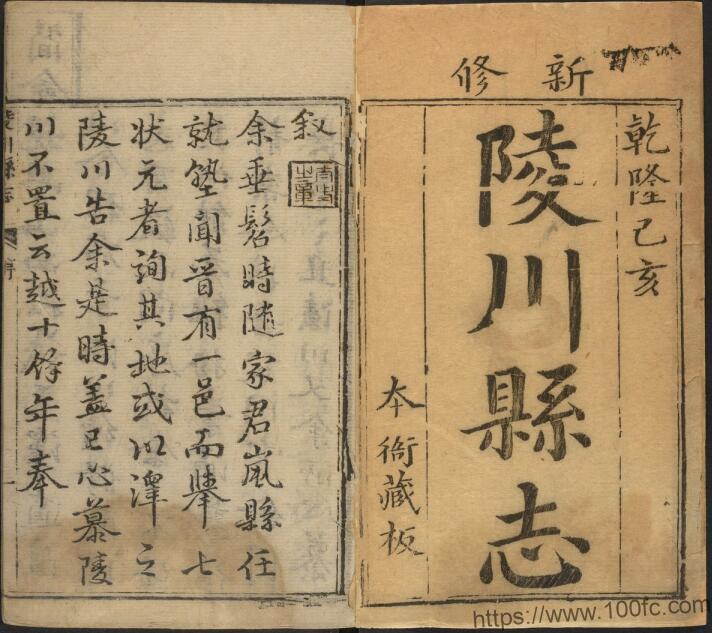 新修
乾隆己亥
陵川縣志
本衙藏板
叙
余垂髫時随家君嵐縣任
就塾聞晋有一邑而舉七
状元者詢其地或以澤之
陵川告余是時盖已心慕陵
川不置云越十餘年奉
陵川縣志
序
https://www.100fc.com